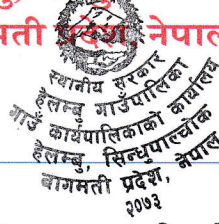 मती प्रदेश, नेपाल
स्थानीय सरकार
हेलम्बु गाउँपालिका
गाउँ कार्यपालिकाको कार्यालय
हेलम्बु, सिन्धुपाल्चोक
बागमती प्रदेश, नेपाल
२०७३